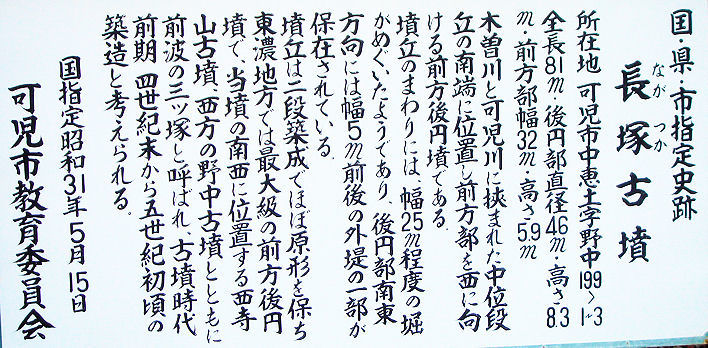 国・県・市指定史跡
長塚古墳
なが つか
所在地 可児市中恵土字野中199〜1~3
全長81m・後円部直径46m・高さ8.3
m・前方部幅32m・高さ5.9m
木曽川と可児川に挟まれた中位段
丘の南端に位置し前方部を西に向
ける前方後円墳である
墳丘のまわりには、幅25m程度の堀
がめぐいたようであり、後円部南東
方向には幅5m前後の外堤の一部が
保存されている。
墳丘は二段築成でほぼ原形を保ち
東濃地方では最大級の前方後円
墳で、当墳の南西に位置する西寺
山古墳、西方の野中古墳とともに
前波の三ツ塚と呼ばれ、古墳時代
前期、四世紀末から五世紀初頃の
築造と考えられる。
国指定昭和31年5月15日
可児市教育委員会